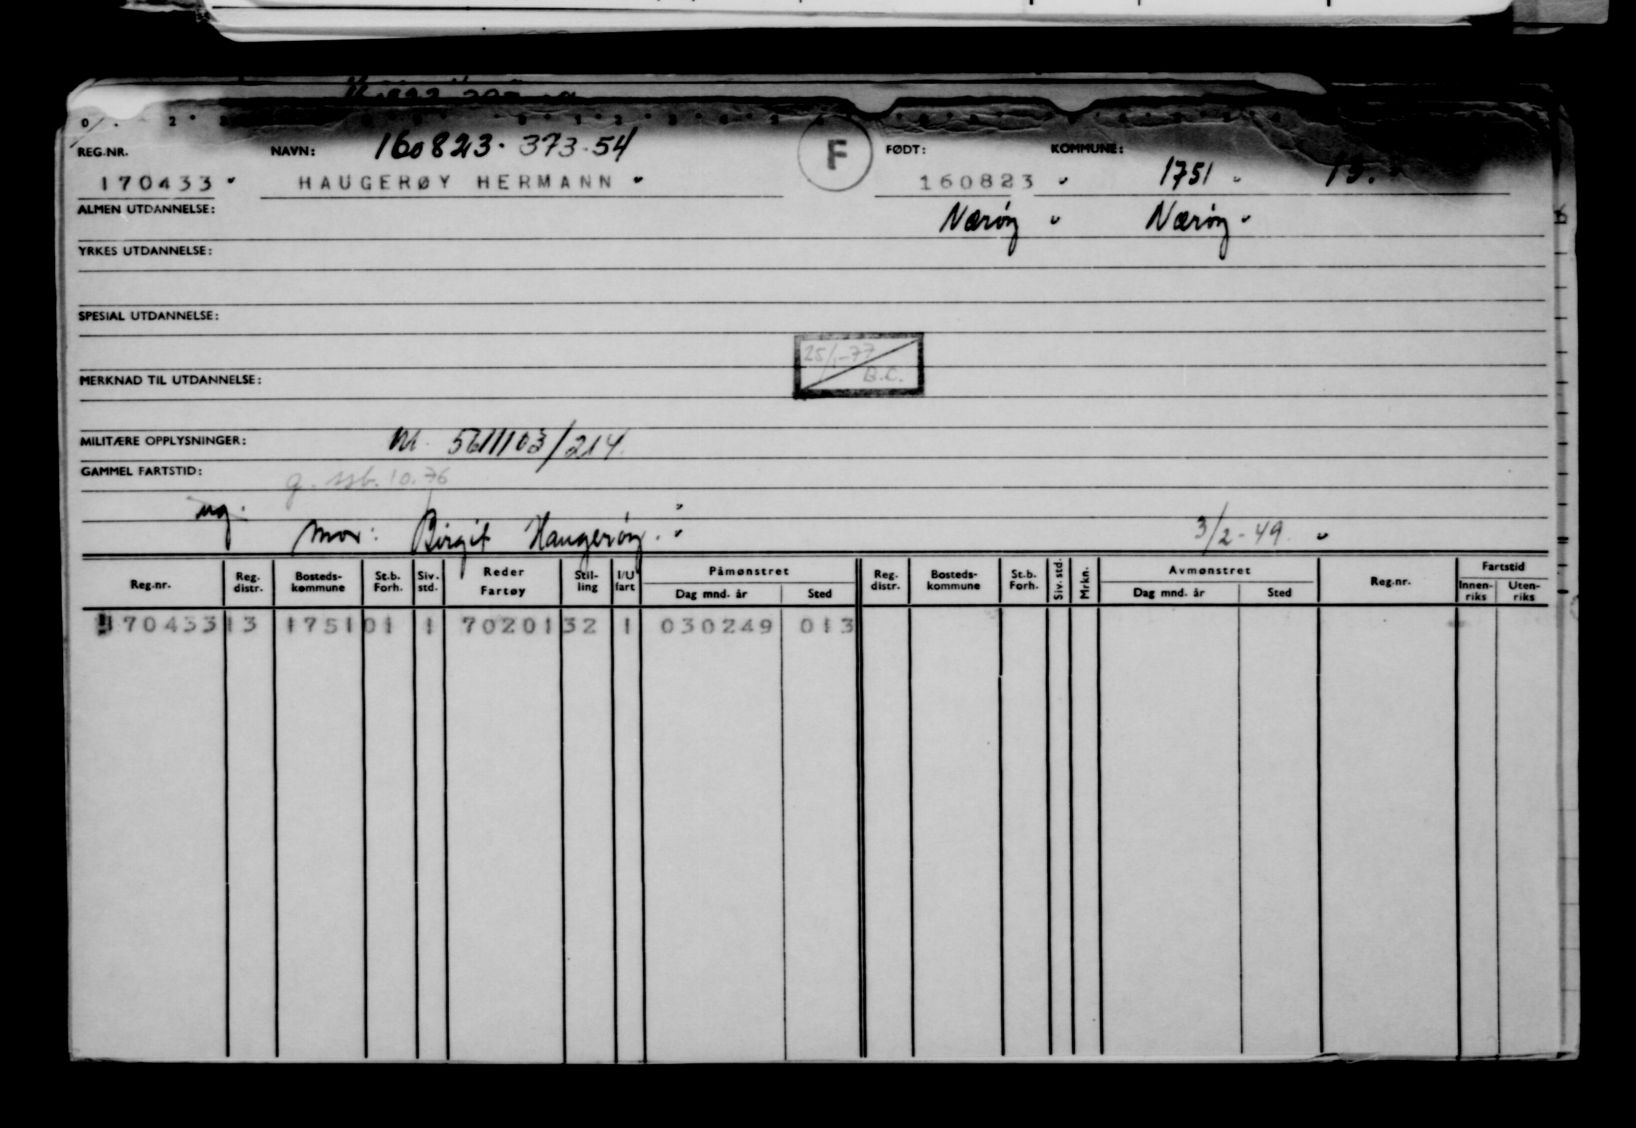 REG.NR. NAVN: 160823. 373.54 F FØDT: KOMMUNE:
170433 HAUGERØY HERMANN 160823 1751 13.
ALMEN UTDANNELSE: Nærøy Nærøy
YRKES UTDANNELSE:
SPESIAL UTDANNELSE:
25/1-77
B.C.
MERKNAD TIL UTDANNELSE:
MILITÆRE OPPLYSNINGER: Nr. 5611103/214
GAMMEL FARTSTID:
g. ssb. 10.76
ug. mor: Birgit Haugerøy. 3/2-49
Reg.nr. Reg. distr. Bosteds-kommune St.b. Forh. Siv. std. Reder Fartøy Stil-ling I/U fart Påmønstret Dag mnd. år Sted Reg. distr. Bosteds-kommune St.b. Forh. Siv. std. Mrkn. Avmønstret Dag mnd. år Sted Reg.nr. Fartstid Innen-riks Uten-riks
170433 13 1751 01 1 70201 32 1 030249 013